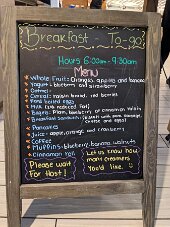 Breakfast - To-go
Hours 6:00am - 9:30am
Menu
Whole Fruit: Oranges, apples and bananas
Yogurt: blueberry and strawberry
Oatmeal
Cereal: raisin brand, red berries
Hard boiled eggs
Milk (2% reduced fat)
Bagels: Plain, blueberry or cinnamon raisin
Breakfast Sandwich: Biscuits with ham, sausage,
cheese and eggs!
Pancakes
Juice: apple, orange and cranberry
Coffee
Muffins: blueberry, banana walnuts
Cinnamon roll
Please wait
For Host!
Let us know how
many creamers
You'd like. :)